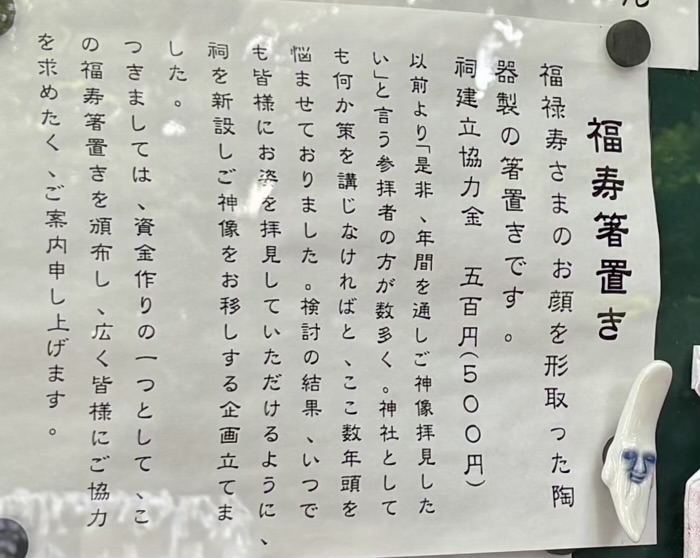 福寿箸置き
福禄寿さまのお顔を形取った陶
器製の箸置きです。
祠建立協力金　五百円(500円)
以前より「是非、年間を通しご神像拝見した
い」と言う参拝者の方が数多く。神社として
も何か策を講じなければと、ここ数年頭を
悩ませておりました。検討の結果、いつで
も皆様にお姿を拝見していただけるように、
祠を新設しご神像をお移しする企画立てま
した。
つきましては、資金作りの一つとして、こ
の福寿箸置きを頒布し、広く皆様にご協力
を求めたく、ご案内申し上げます。